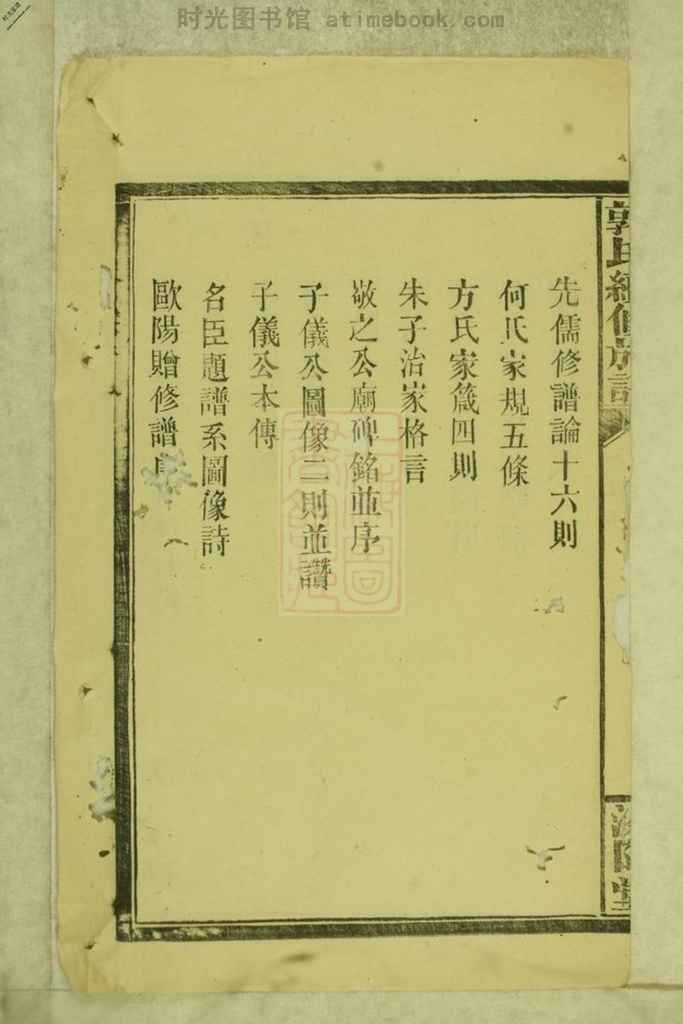 时光图书馆 atimebook.com
郭氏續修族譜
先儒修譜論十六則
何氏家規五條
方氏家箴四則
朱子治家格言
敬之公廟碑銘並序
子儀公圖像二則並讚
子儀公本傳
名臣題譜系圖像詩
歐陽贈修譜